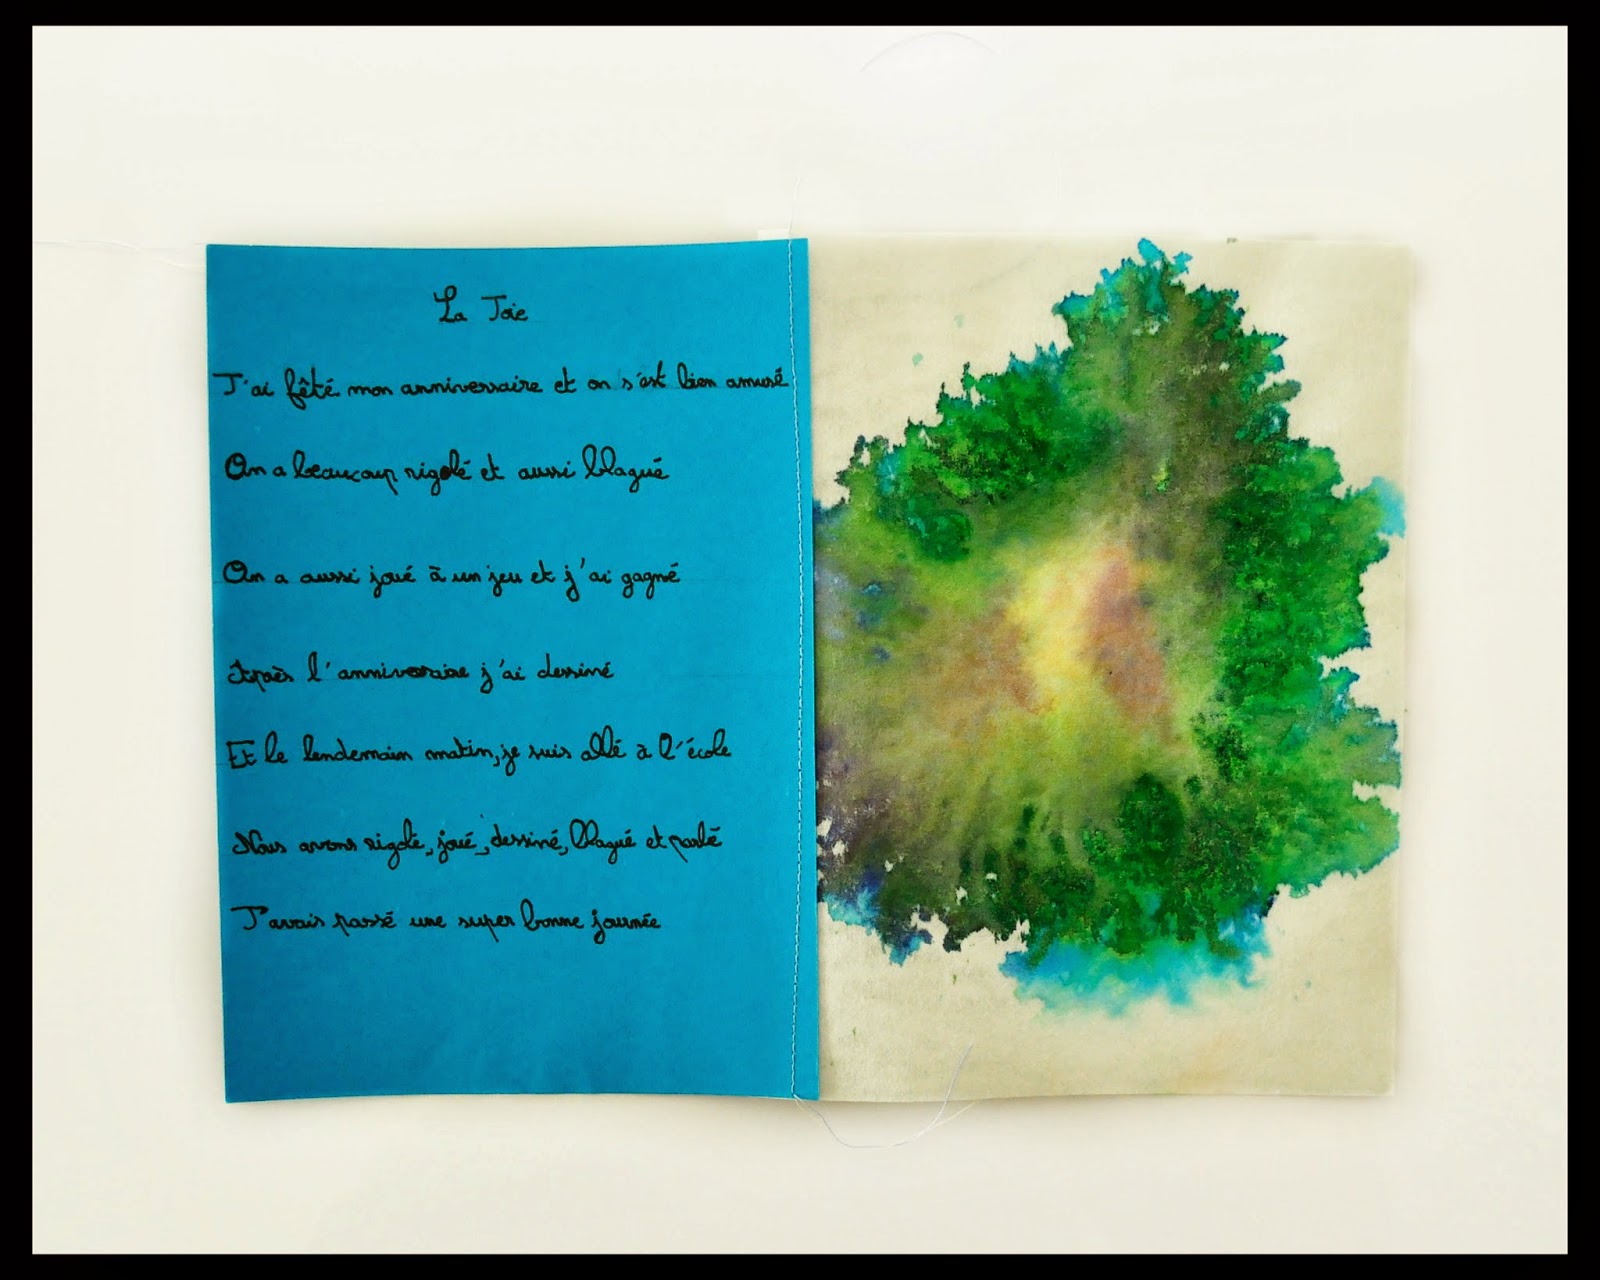 La Joie
J'ai fêté mon anniversaire et on s'est bien amusé
On a beaucoup rigolé et aussi blagué
On a aussi joué à un jeu et j'ai gagné
Après l'anniversaire j'ai dessiné
Et le lendemain matin, je suis allé à l'école
Nous avons rigolé, joué, dessiné, blagué et parlé
J'avais passé une super bonne journée